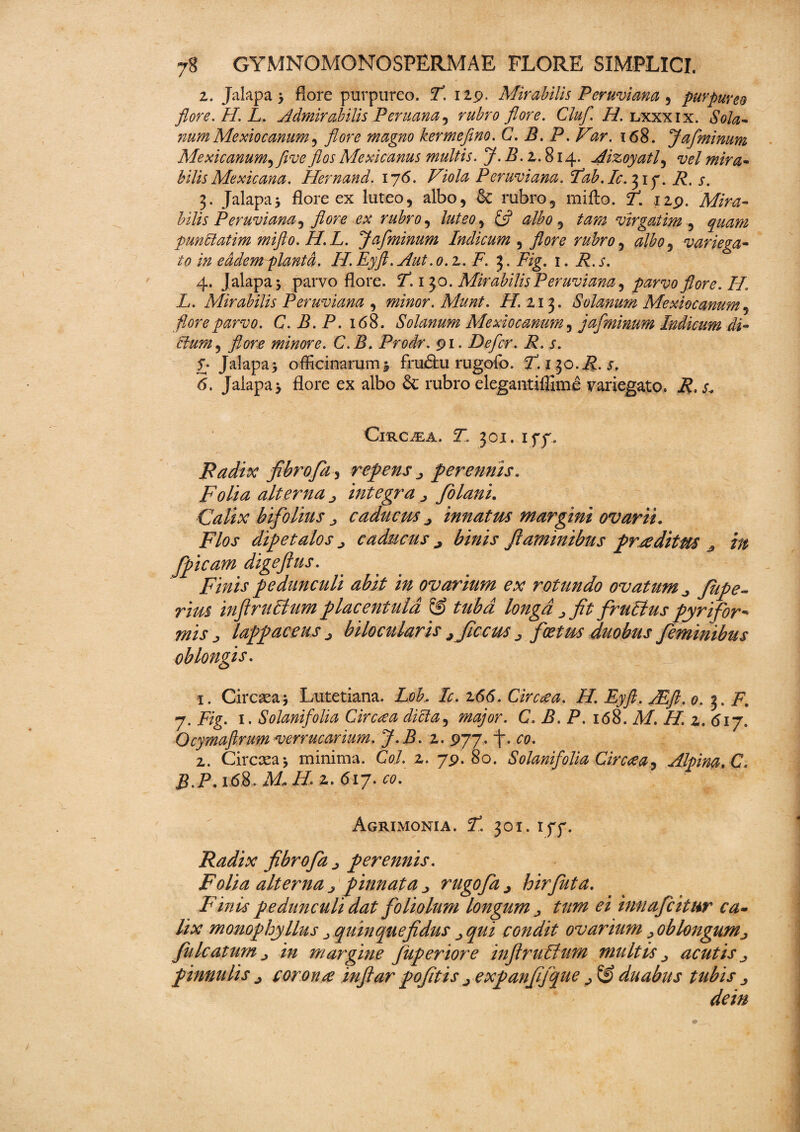 78 GYMNOMONOSPERMAE FLORE SIMPLICI.
2. Jalapa; flore purpureo. T. 129. Mirabilis Peruviana, purpureo
flore. H. L. Admirabilis Peruana, rubro flore. Cluſ. H. LXXXIX. Sola-
num Mexiocanum, flore magno kermeſino. C. B. P. Var. 168. Jaſminum
Mexicanum, ſive flos Mexicanus multis. J. B. 2. 814. Aizoyatl, vel mira-
bilis Mexicana. Hernand. 176. Viola Peruviana. Tab. Ic. 315. R. s.
3. Jalapa; flore ex luteo, albo, & rubro, miſto. T. 129. Mira-
bilis Peruviana, flore ex rubro, luteo, & albo, tam virgatim, quam
punctatim miſto. H. L. Jaſminum Indicum, flore rubro, albo, variega-
to in eâdem plantâ. H. Eyſt. Aut. o. 2. F. 3. Fig. 1. R. s.
4. Jalapa; parvo flore. T. 130. Mirabilis Peruviana, parvo flore. H.
L. Mirabilis Peruviana, minor. Munt. H. 213. Solanum Mexiocanum,
flore parvo. C. B. P. 168. Solanum Mexiocanum, jaſminum Indicum di-
ctum, flore minore. C. B. Prodr. 91. Deſcr. R. s.
5. Jalapa; officinarum; fructu rugoſo. T. 130. R. s.
6. Jalapa; flore ex albo & rubro elegantiſſimè variegato. R. s.
CIRCÆA. T. 301. 155.
Radix fibroſa, repens, perennis.
Folia alterna, integra, ſolani.
Calix bifolius, caducus, innatus margini ovarii.
Flos dipetalos, caducus, binis ſtaminibus præditus, in
ſpicam digeſtus.
Finis pedunculi abit in ovarium ex rotundo ovatum, ſupe-
rius inſtructum placentulâ & tubâ longâ, fit fructus pyrifor-
mis, lappaceus, bilocularis, ſiccus, fœtus duobus ſeminibus
oblongis.
1. Circæa; Lutetiana. Lob. Ic. 266. Circæa. H. Eyſt. Æſt. o. 3. F.
7. Fig. 1. Solanifolia Circæa dicta, major. C. B. P. 168. M. H. 2. 617.
Ocymaſtrum verrucarium. J. B. 2. 977. †. co.
2. Circæa; minima. Col. 2. 79. 80. Solanifolia Circæa, Alpina. C.
B. P. 168. M. H. 2. 617. co.
AGRIMONIA. T. 301. 155.
Radix fibroſa, perennis.
Folia alterna, pinnata, rugoſa, hirſuta.
Finis pedunculi dat foliolum longum, tum ei innaſcitur ca-
lix monophyllus, quinquefidus, qui condit ovarium, oblongum,
ſulcatum, in margine ſuperiore inſtructum multis, acutis,
pinnulis, coronæ inſtar poſitis, expanſiſque, & duabus tubis,
dein